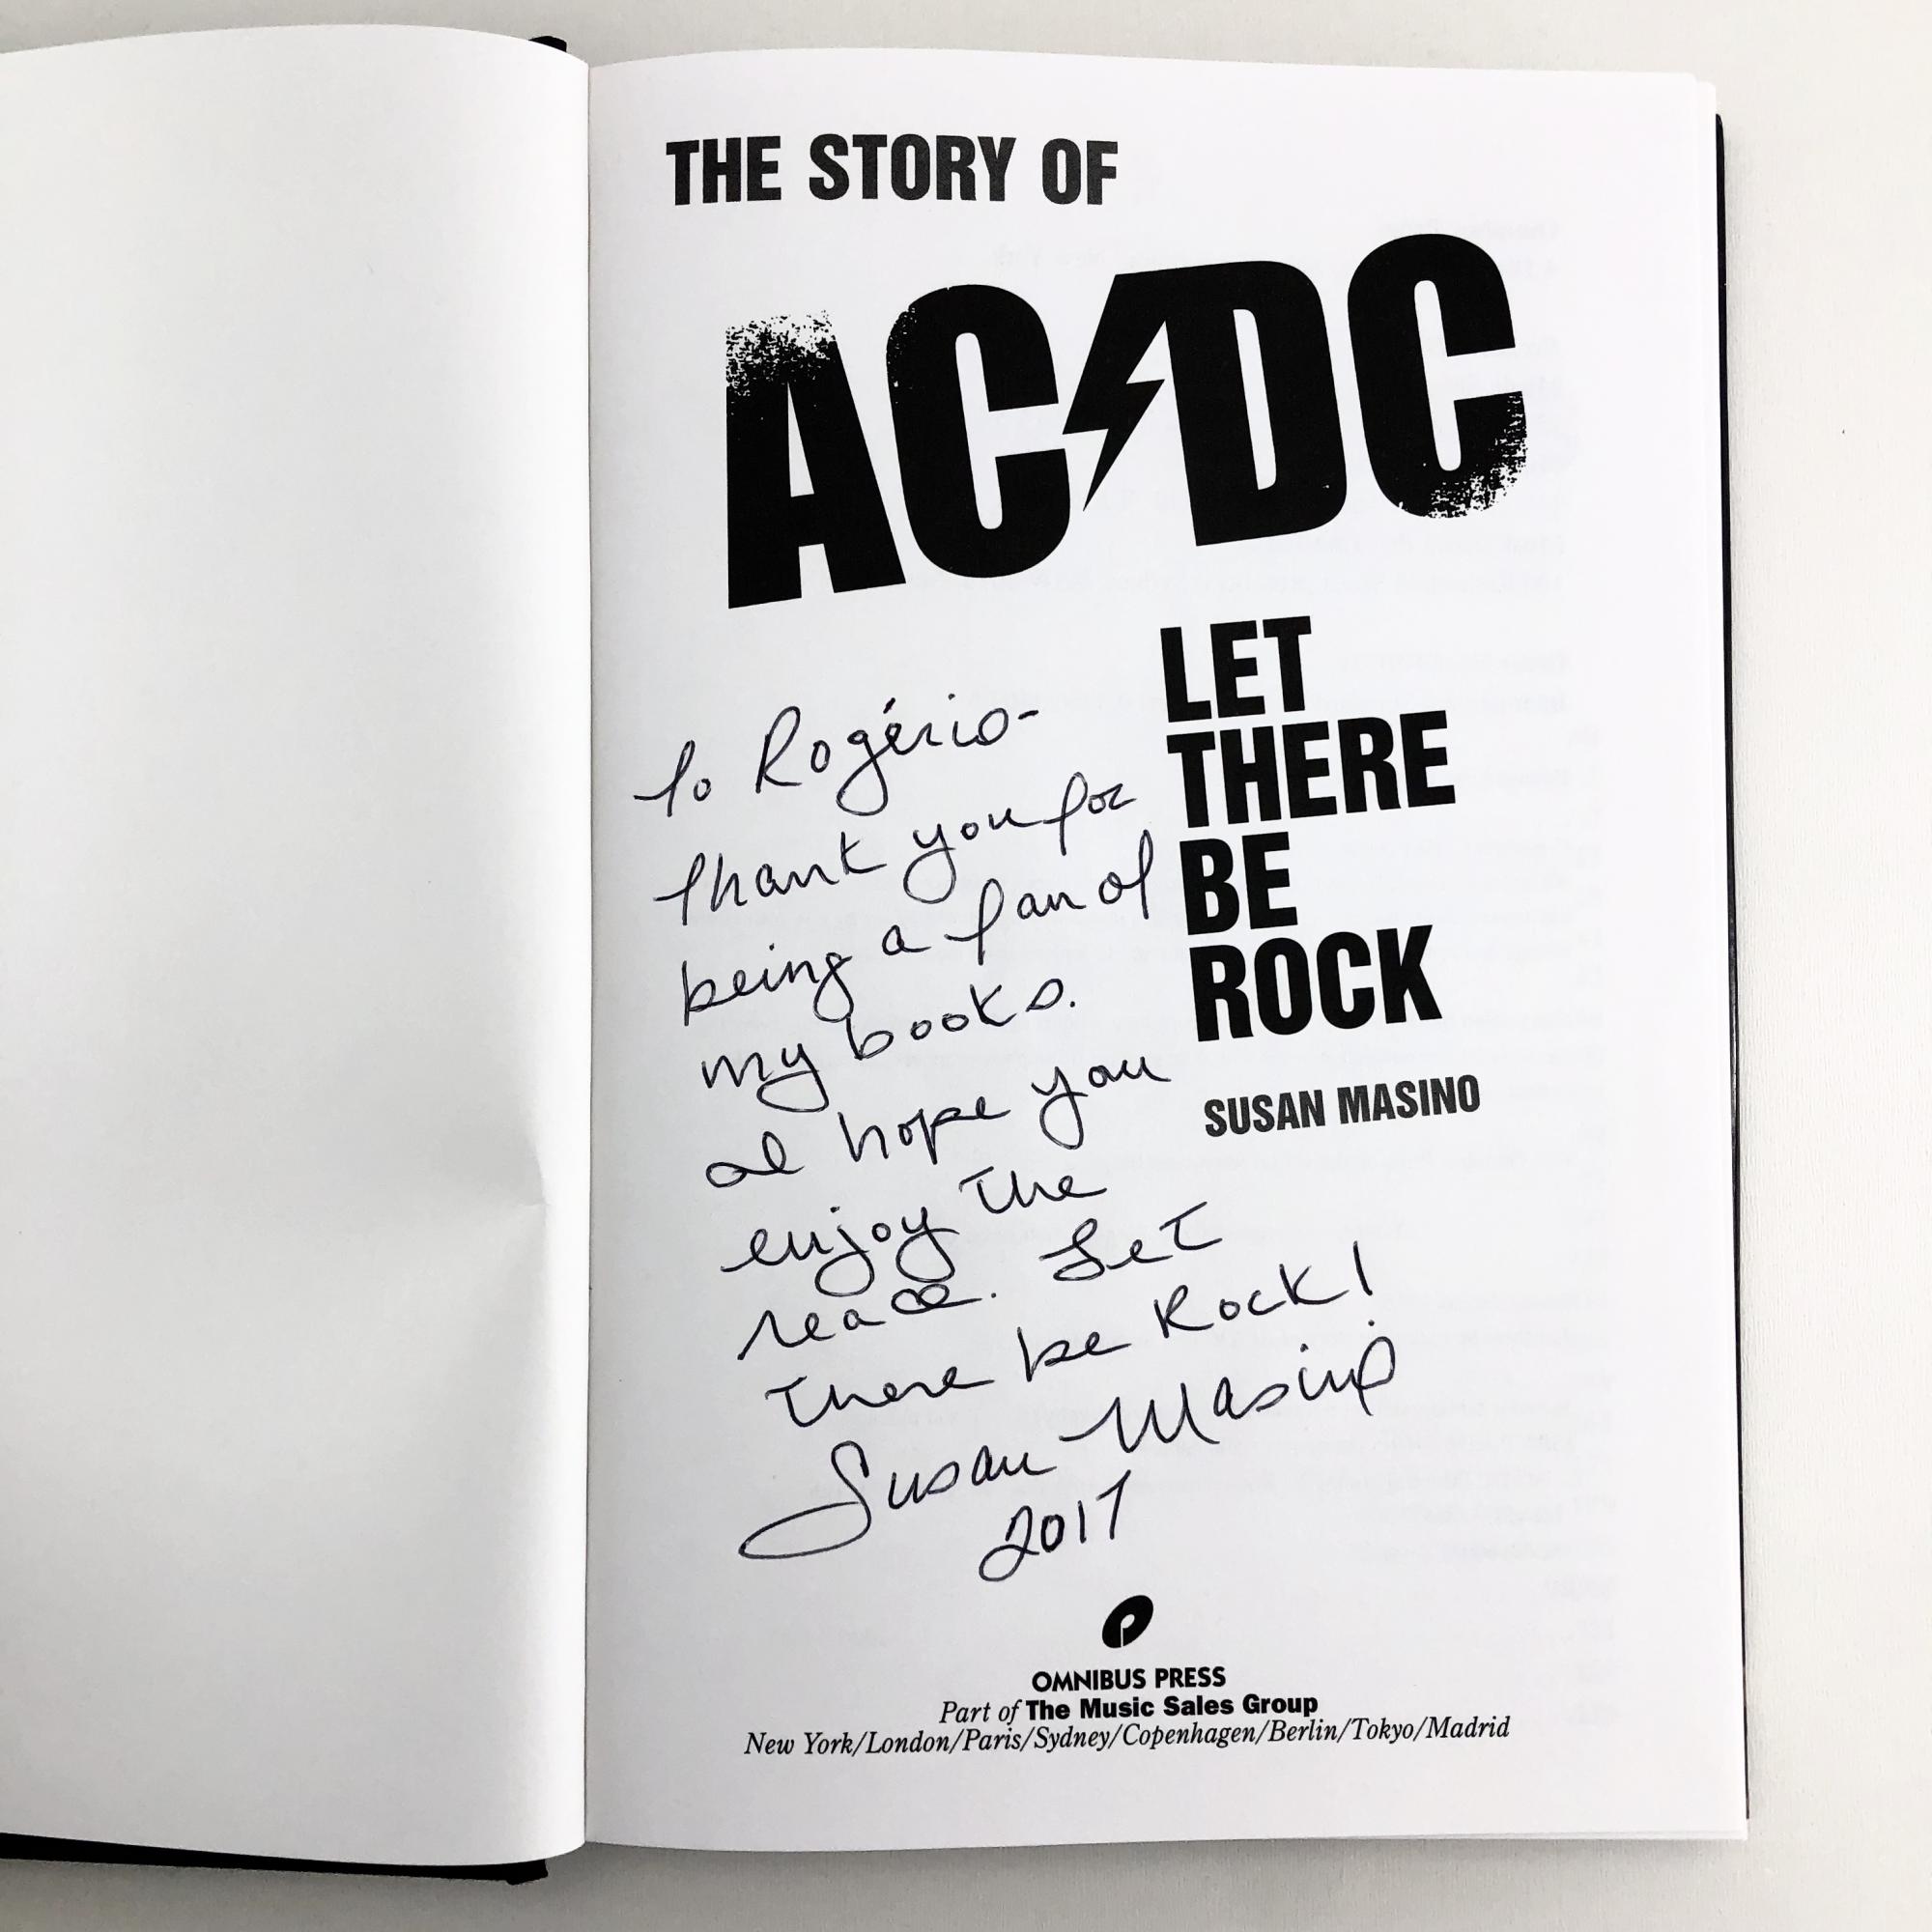 THE STORY OF
AC/DC
LET
THERE
BE
ROCK
SUSAN MASINO
To Rogério-
Thank you for
being a fan of
my books.
I hope you
enjoy the
read. Let
There be Rock!
Susan Masino
2017
OMNIBUS PRESS
Part of The Music Sales Group
New York/London/Paris/Sydney/Copenhagen/Berlin/Tokyo/Madrid